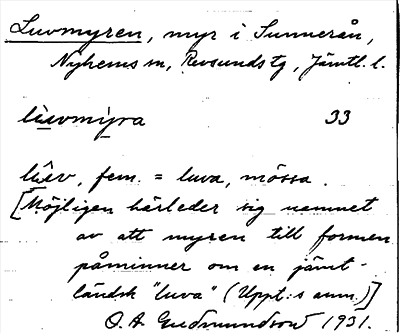 Luvmyren, myr i Sunnerån,
Nyhems sn, Revsunds tg, Jämtl. l.
lùevmyra 33
lûev, fem. = luva, mössa.
[Möjligen härleder sig namnet
av att myren till formen
påminner om en jämt-
ländsk "luva" (Uppt:s anm.)]
O. A. Gudmundson 1931.